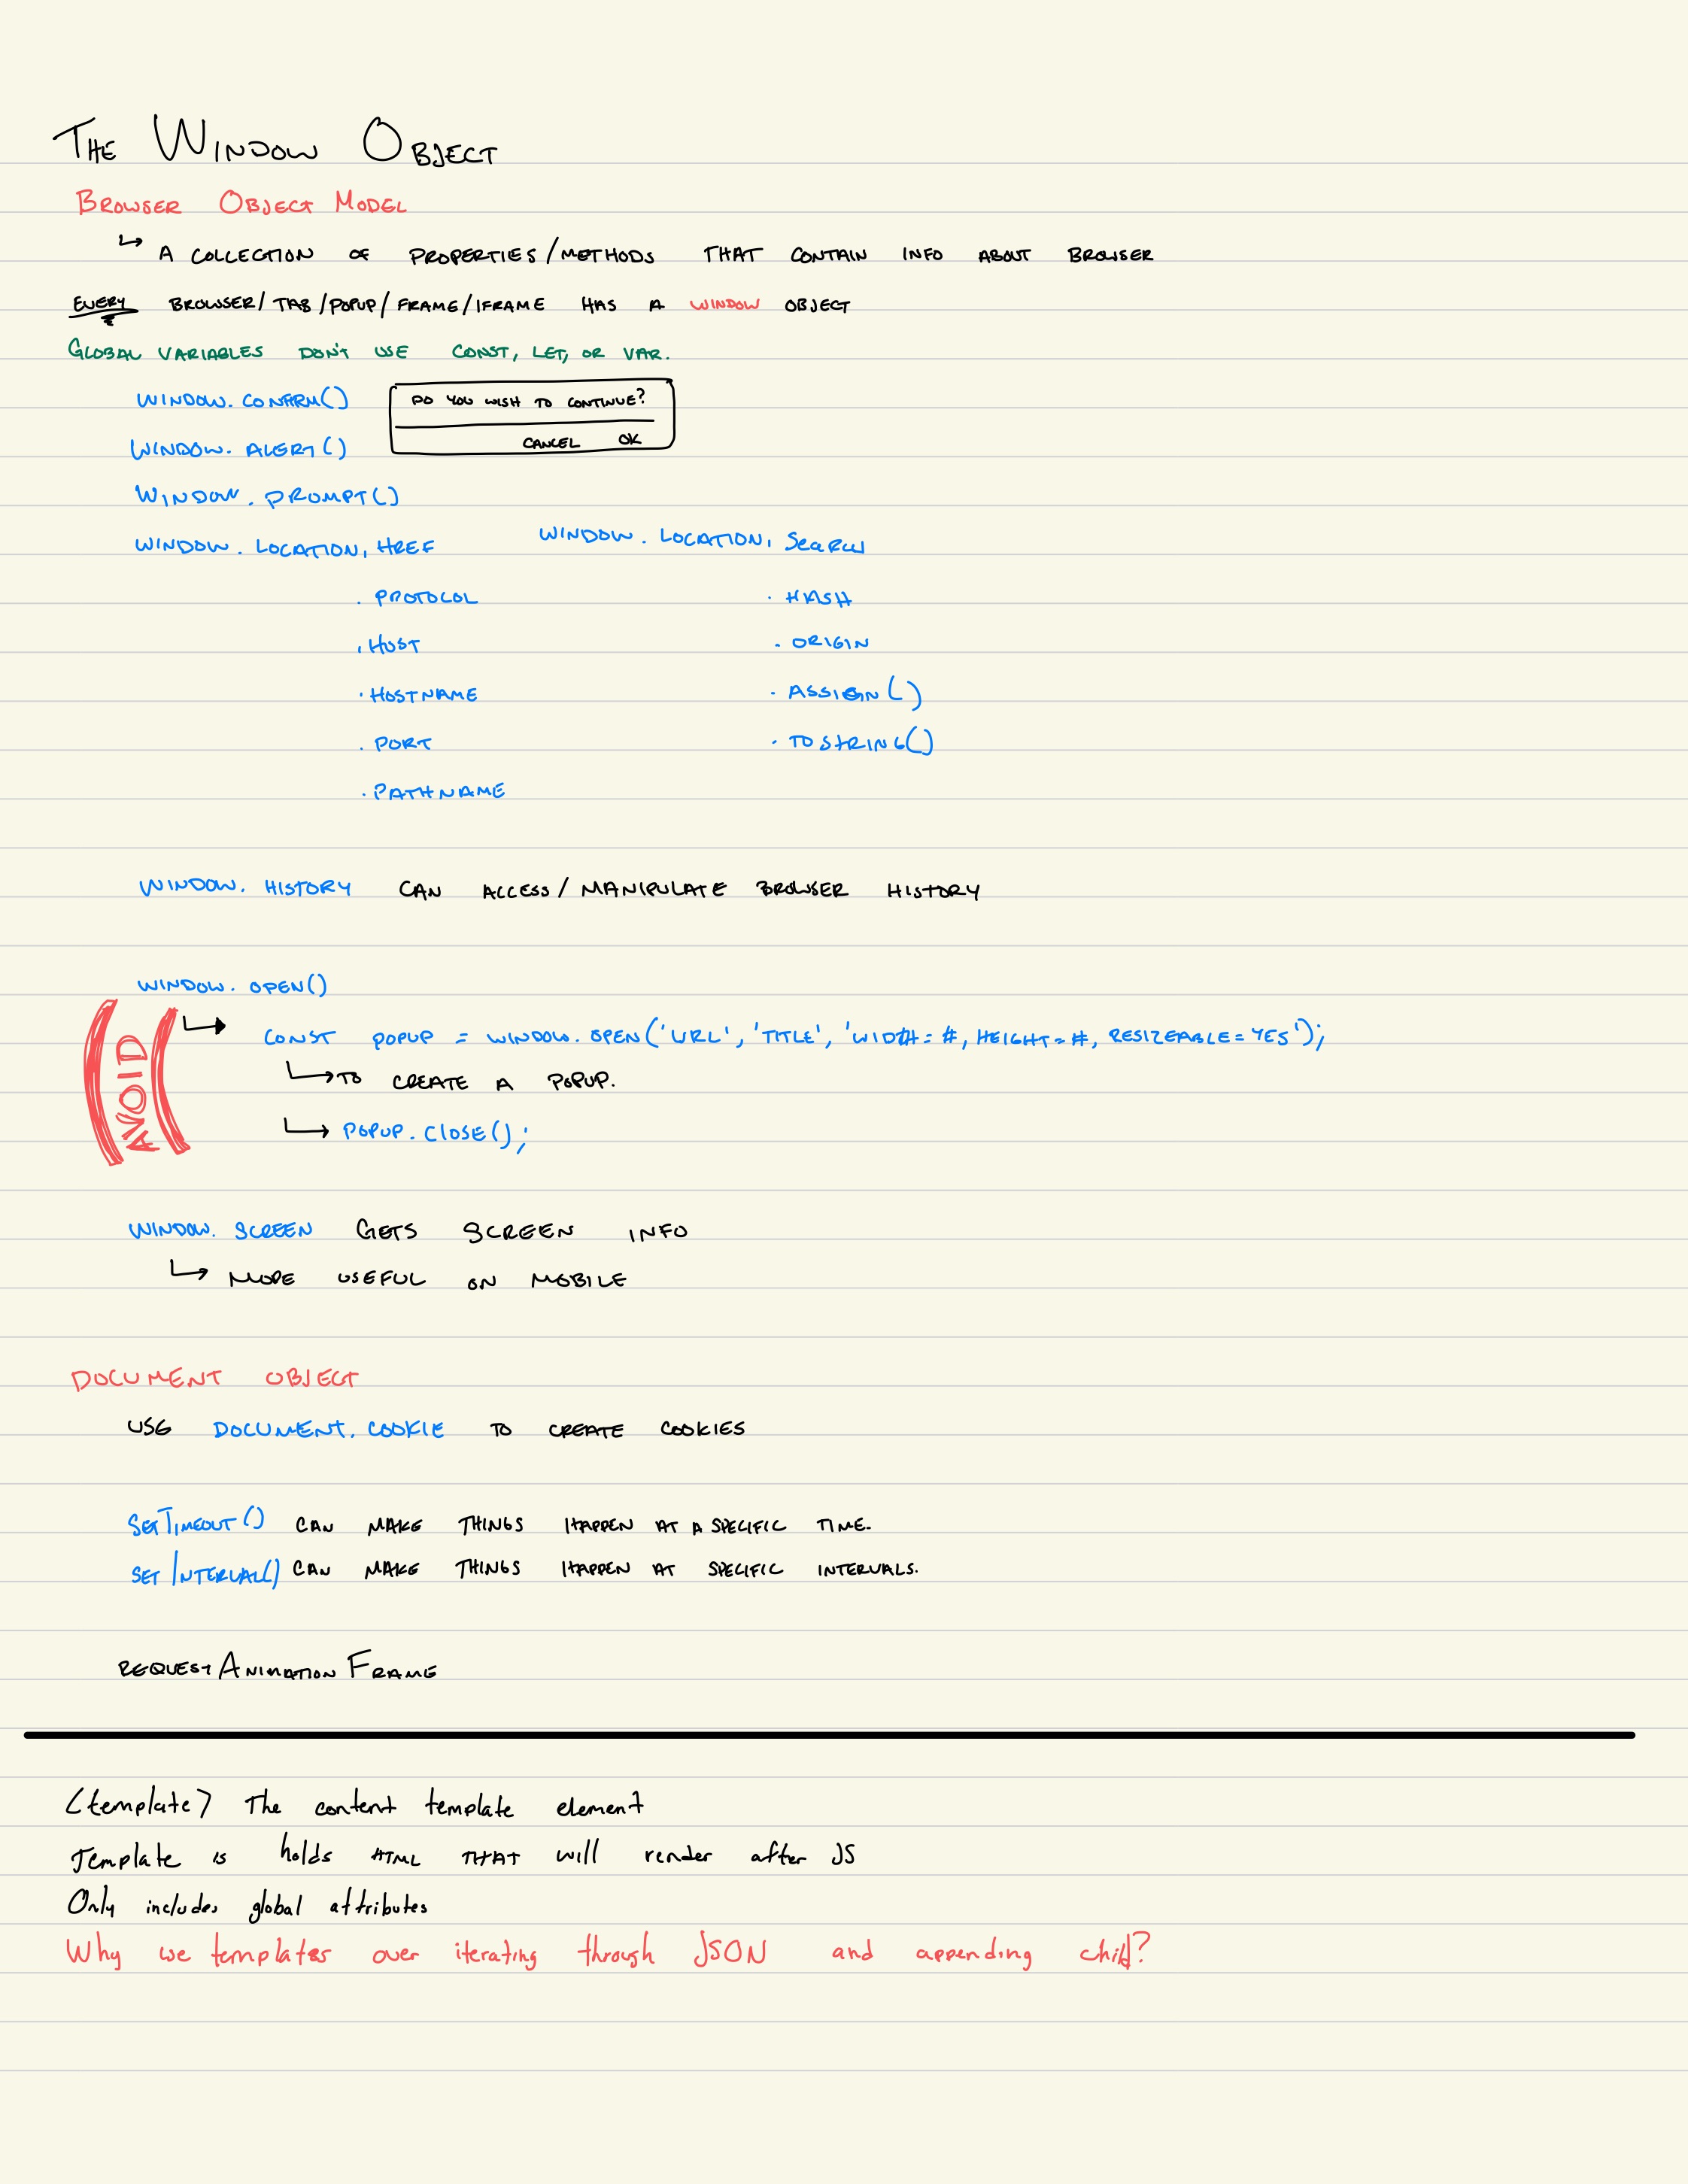 THE WINDOW OBJECT
BROWSER OBJECT MODEL
↳ A COLLECTION OF PROPERTIES/METHODS THAT CONTAIN INFO ABOUT BROWSER
EVERY BROWSER/TAB/POPUP/FRAME/IFRAME HAS A WINDOW OBJECT
GLOBAL VARIABLES DON'T USE CONST, LET, OR VAR.
WINDOW.CONFIRM()
DO YOU WISH TO CONTINUE?
CANCEL OK
WINDOW.ALERT()
WINDOW.PROMPT()
WINDOW.LOCATION.HREF
.PROTOCOL
.HOST
.HOSTNAME
.PORT
.PATHNAME
WINDOW.LOCATION.SEARCH
.HASH
.ORIGIN
.ASSIGN()
.TOSTRING()
WINDOW.HISTORY CAN ACCESS/MANIPULATE BROWSER HISTORY
WINDOW.OPEN()
AVOID
↳ CONST POPUP = WINDOW.OPEN('URL', 'TITLE', 'WIDTH=#, HEIGHT=#, RESIZEABLE=YES');
↳ TO CREATE A POPUP.
↳ POPUP.CLOSE();
WINDOW.SCREEN GETS SCREEN INFO
↳ MORE USEFUL ON MOBILE
DOCUMENT OBJECT
USE DOCUMENT.COOKIE TO CREATE COOKIES
SETTIMEOUT() CAN MAKE THINGS HAPPEN AT A SPECIFIC TIME.
SETINTERVAL() CAN MAKE THINGS HAPPEN AT SPECIFIC INTERVALS.
REQUESTANIMATIONFRAME
<template> The content template element
Template is holds HTML THAT will render after JS
Only includes global attributes
Why use templates over iterating through JSON and appending child?